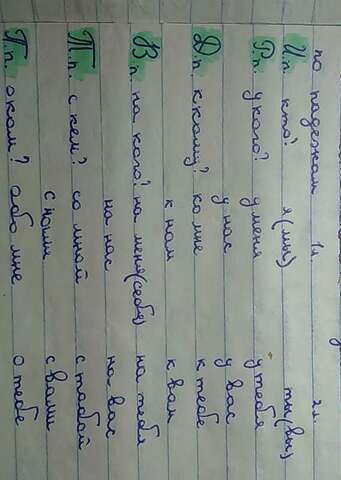 по падежам 1л. 2л.
И.п. кто? я (мы) ты (вы)
Р.п. у кого? у меня у тебя
у нас у вас
Д.п. к кому? ко мне к тебе
к нам к вам
В.п. на кого? на меня (себя) на тебя
на нас на вас
Т.п. с кем? со мной с тобой
с нами с вами
П.п. о ком? обо мне о тебе